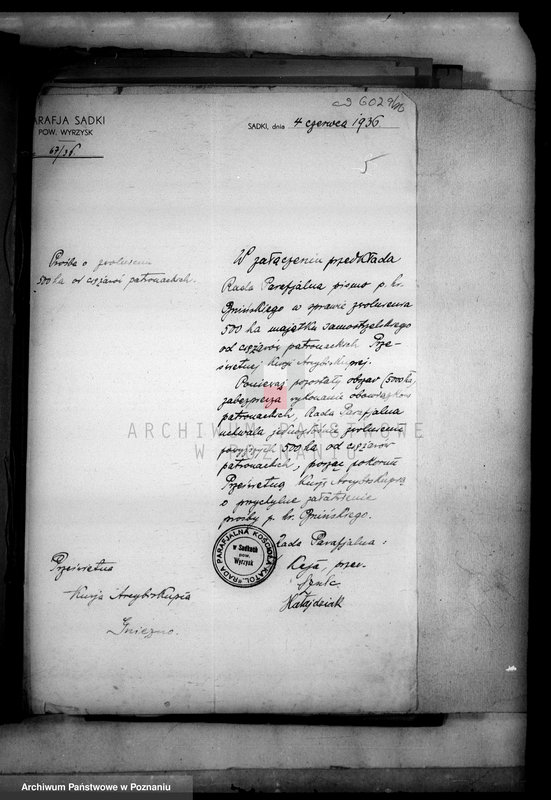 PARAFJA SADKI
POW. WYRZYSK
67/36
SADKI, dnia 4 czerwca 1936
5
Prośba o zwolnienie
500 ha od ciężarów patronackich.
W załączeniu przedkłada
Rada Parafjalna pismo p. hr.
Bnińskiego w sprawie zwolnienia
500 ha majątku samostrzelskiego
od ciężarów patronackich Prze-
świetnej Kurji Arcybiskupiej.
Ponieważ pozostały obszar (5000 ha)
zabezpiecza wykonanie obowiązków
patronackich, Rada Parafjalna
uchwala jednogłośnie zwolnienie
powyższych 500 ha od ciężarów
patronackich, prosząc pokornie
Prześwietną Kurję Arcybiskupią
o przychylne załatwienie
prośby p. hr. Bnińskiego.
Rada Parafjalna:
RADA PARAFJALNA KOŚCIOŁA KATOL.
w Sadkach
pow.
Wyrzysk
Hałajdziak
Prześwietna
Kurja Arcybiskupia
Gniezno.
ARCHIWUM PAŃSTWOWE
W POZNANIU
Archiwum Państwowe w Poznaniu